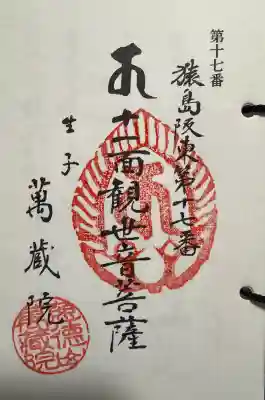 第十七番
猿島阪東第十七番
十一面観世音菩薩
生子
萬蔵院